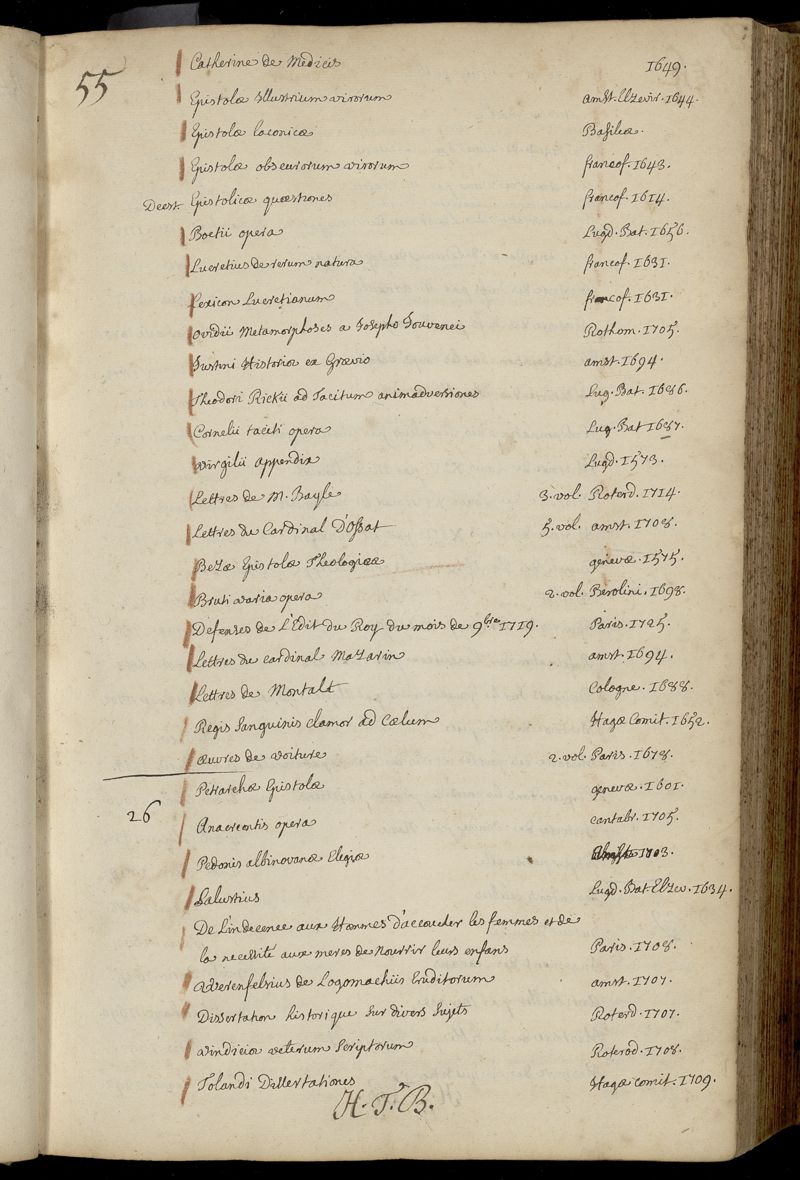 55
Catherine de Medicis 1649.
Epistolæ Illustrium virorum amst. Elzevir. 1644.
Epistolæ laconicæ Basileæ.
Epistolæ obscurorum virorum francof. 1643.
Deest. Epistolicæ quæstiones francof. 1614.
Boetii opera Lugd. Bat. 1656.
Lucretius de rerum natura francof. 1631.
Lexicon Lucretianum francof. 1631.
ovidii Metamorphoses a Josepho Jouvenci Rothom. 1705.
Justini Historia ex Grævio amst. 1694.
Theodori Rickii ad Tacitum animadversiones Lug. Bat. 1686.
Cornelii taciti opera Lug. Bat 1687.
virgilii appendix Lugd. 1573.
Lettres de M. Bayle 3. vol. Roterd. 1714.
Lettres du Cardinal D'Ossat 5. vol. amst. 1708.
Bezæ Epistolæ Theologicæ genevæ. 1575.
Bruti varia opera 2. vol. Berolini. 1698.
Defenses de L'Edit du Roy du mois de 9bre 1719. Paris. 1725.
Lettres du cardinal Mazarin amst. 1694.
Lettres de Montalt Cologne. 1688.
Regis Sanguinis clamor ad Cælum Hagæ Comit. 1652.
œuvres de voiture 2. vol. Paris. 1678.
Petrarchæ Epistolæ genevæ. 1601.
26
Anacreontis opera cantabr. 1705.
Pedonis albinovanæ Elegiæ 1703.
Salustius Lugd. Bat. Elzev. 1634.
De L'indecence aux Hommes d'accoucher les femmes et de
la necessité aux meres de Nourrir leurs enfans Paris. 1708.
Werenfelsius de Logomachiis Eruditorum amst. 1707.
Dissertation historique sur divers Sujets Roterd. 1707.
vindiciæ veterum scriptorum Roterod. 1708.
Tolandi Dissertationes Hagæ comit. 1709.
H. T. B.